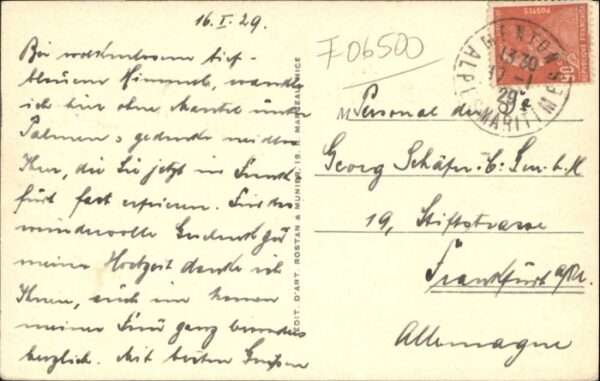 16.I.29.
Bei wolkenlosem tief-
blauem Himmel, wandle
ich hier ohne Mantel unter
Palmen & gedenke neidlos
Ihrer, die Sie jetzt in Frank
furt fast erfrieren. Für das
wundervolle Geschenk zu
meiner Hochzeit danke ich
Ihnen, auch im Namen
meiner Frau ganz besonders
herzlich. Mit besten Grüßen
EDIT. D'ART. ROSTAN & MUNIER, 19, R. NICE
F06500
POSTES
MENTON
13 30
17 - 1
29
ALPES MARITIMES
Personal der
Georg Schäfer & C: G.m.b.H
19, Stiftstrasse
Frankfurt a/M.
Allemagne